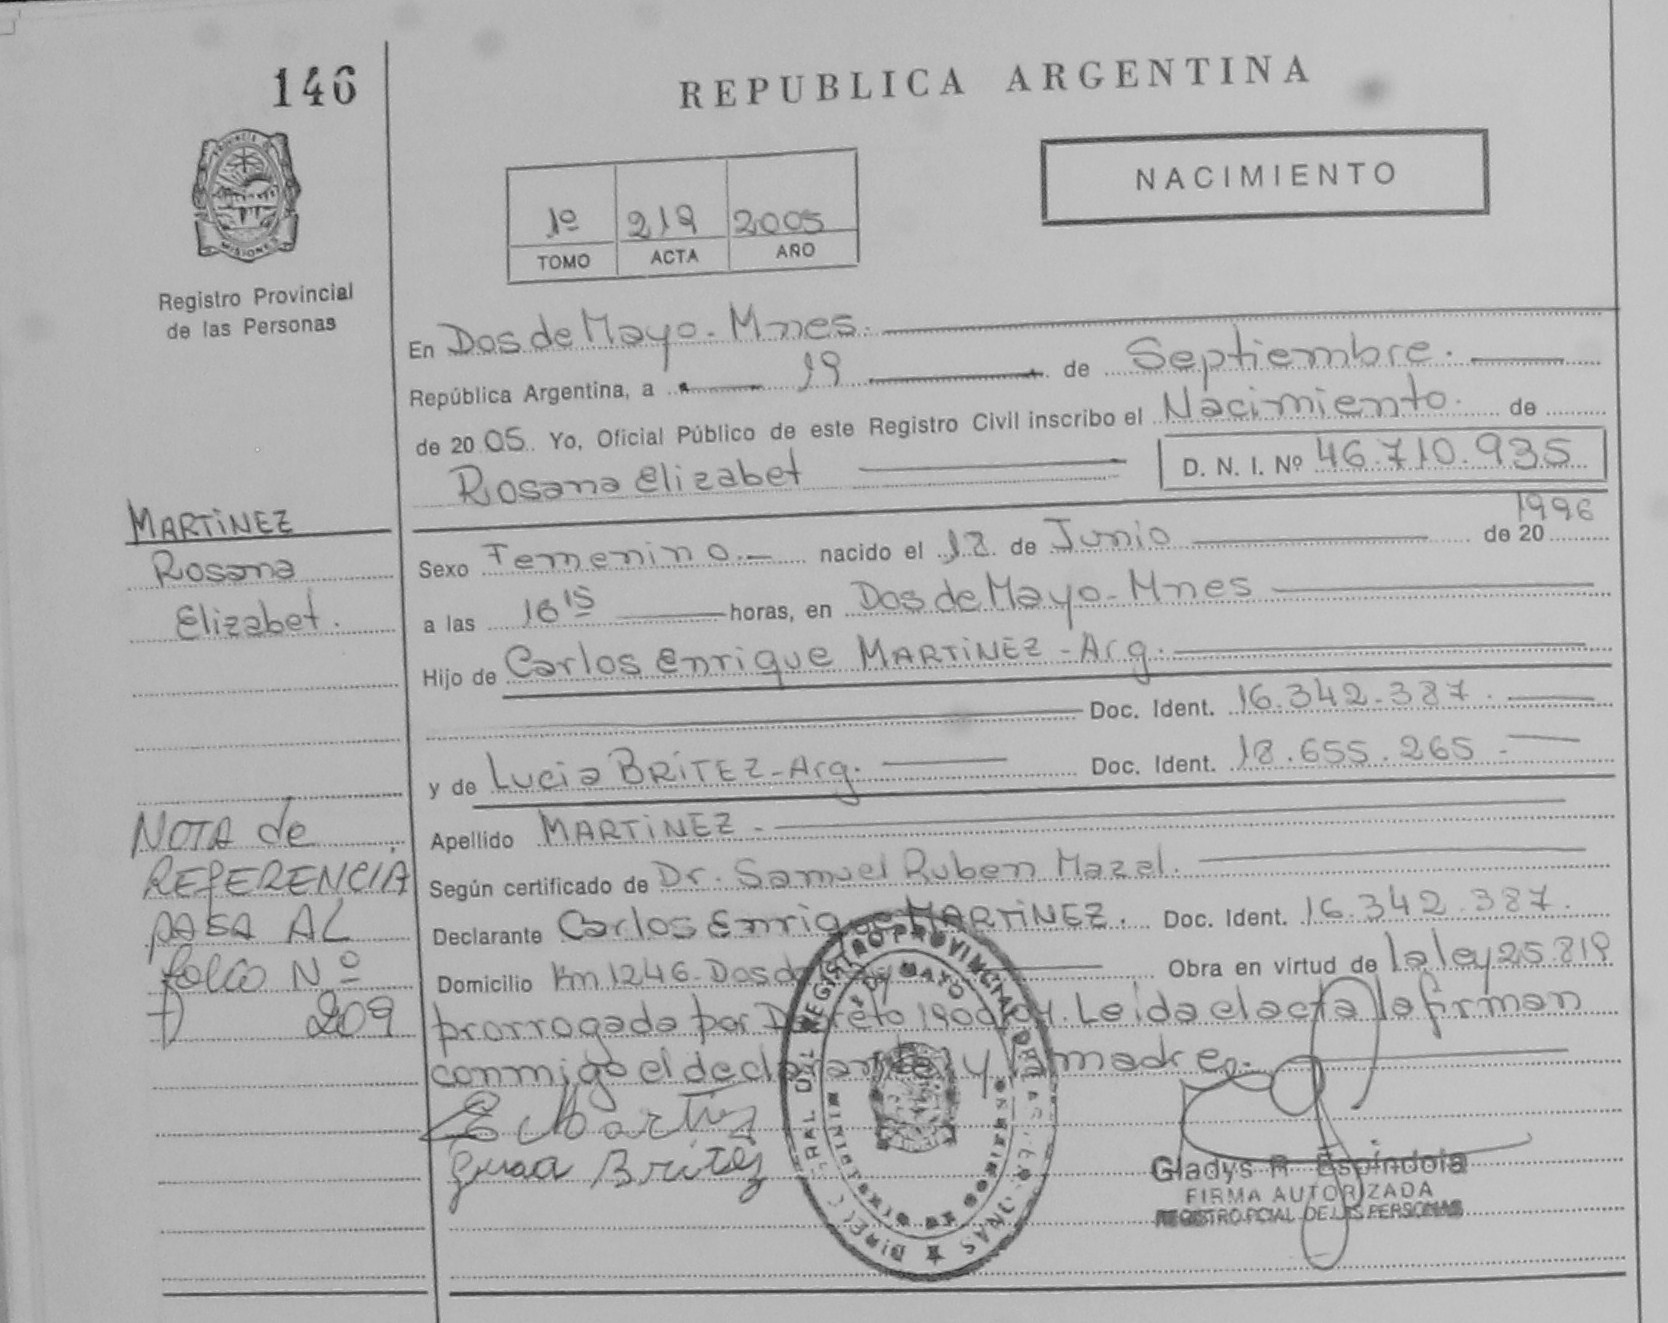 146
REPUBLICA ARGENTINA
PROVINCIA DE
MISIONES
Registro Provincial
de las Personas
NACIMIENTO
1º 219 2005
TOMO ACTA AÑO
En Dos de Mayo - Mnes.
República Argentina, a 19 de Septiembre.
de 2005 Yo, Oficial Público de este Registro Civil inscribo el Nacimiento. de
Rosana Elizabet D. N. I. Nº 46.710.935
MARTINEZ
Rosana
Elizabet.
Sexo Femenino.- nacido el 12 de Junio de 20 1996
a las 16 15 horas, en Dos de Mayo - Mnes
Hijo de Carlos Enrique MARTINEZ - Arg.
Doc. Ident. 16.342.387.
y de Lucia BRITEZ - Arg. Doc. Ident. 18.655.265.
Apellido MARTINEZ.
Según certificado de Dr. Samuel Ruben Mazal.
Declarante Carlos Enrique MARTINEZ. Doc. Ident. 16.342.387.
Domicilio Km 1246 - Dos de Obra en virtud de la ley 25.819
prorrogada por Decreto Leida el acta la firman
conmigo el declarante y la madre.
NOTA de
REFERENCIA
PASA AL
folio Nº
209
Britez
REGISTRO PROVINCIAL DE LAS PERSONAS
DOS DE MAYO
Gladys R. Espindola
FIRMA AUTORIZADA
REGISTRO PCIAL. DE LAS PERSONAS